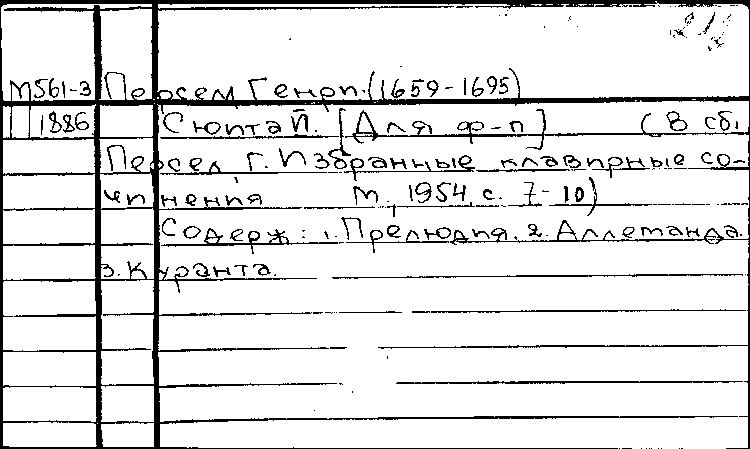 М561-3 Персел Генри. (1659-1695)
1886 Сюита й. [Для ф-п] (В сб.
Персел, Г. Избранные клавирные со-
чинения М., 1954, с. 7-10)
Содерж: 1. Прелюдия. 2. Аллеманда.
3. Куранта.